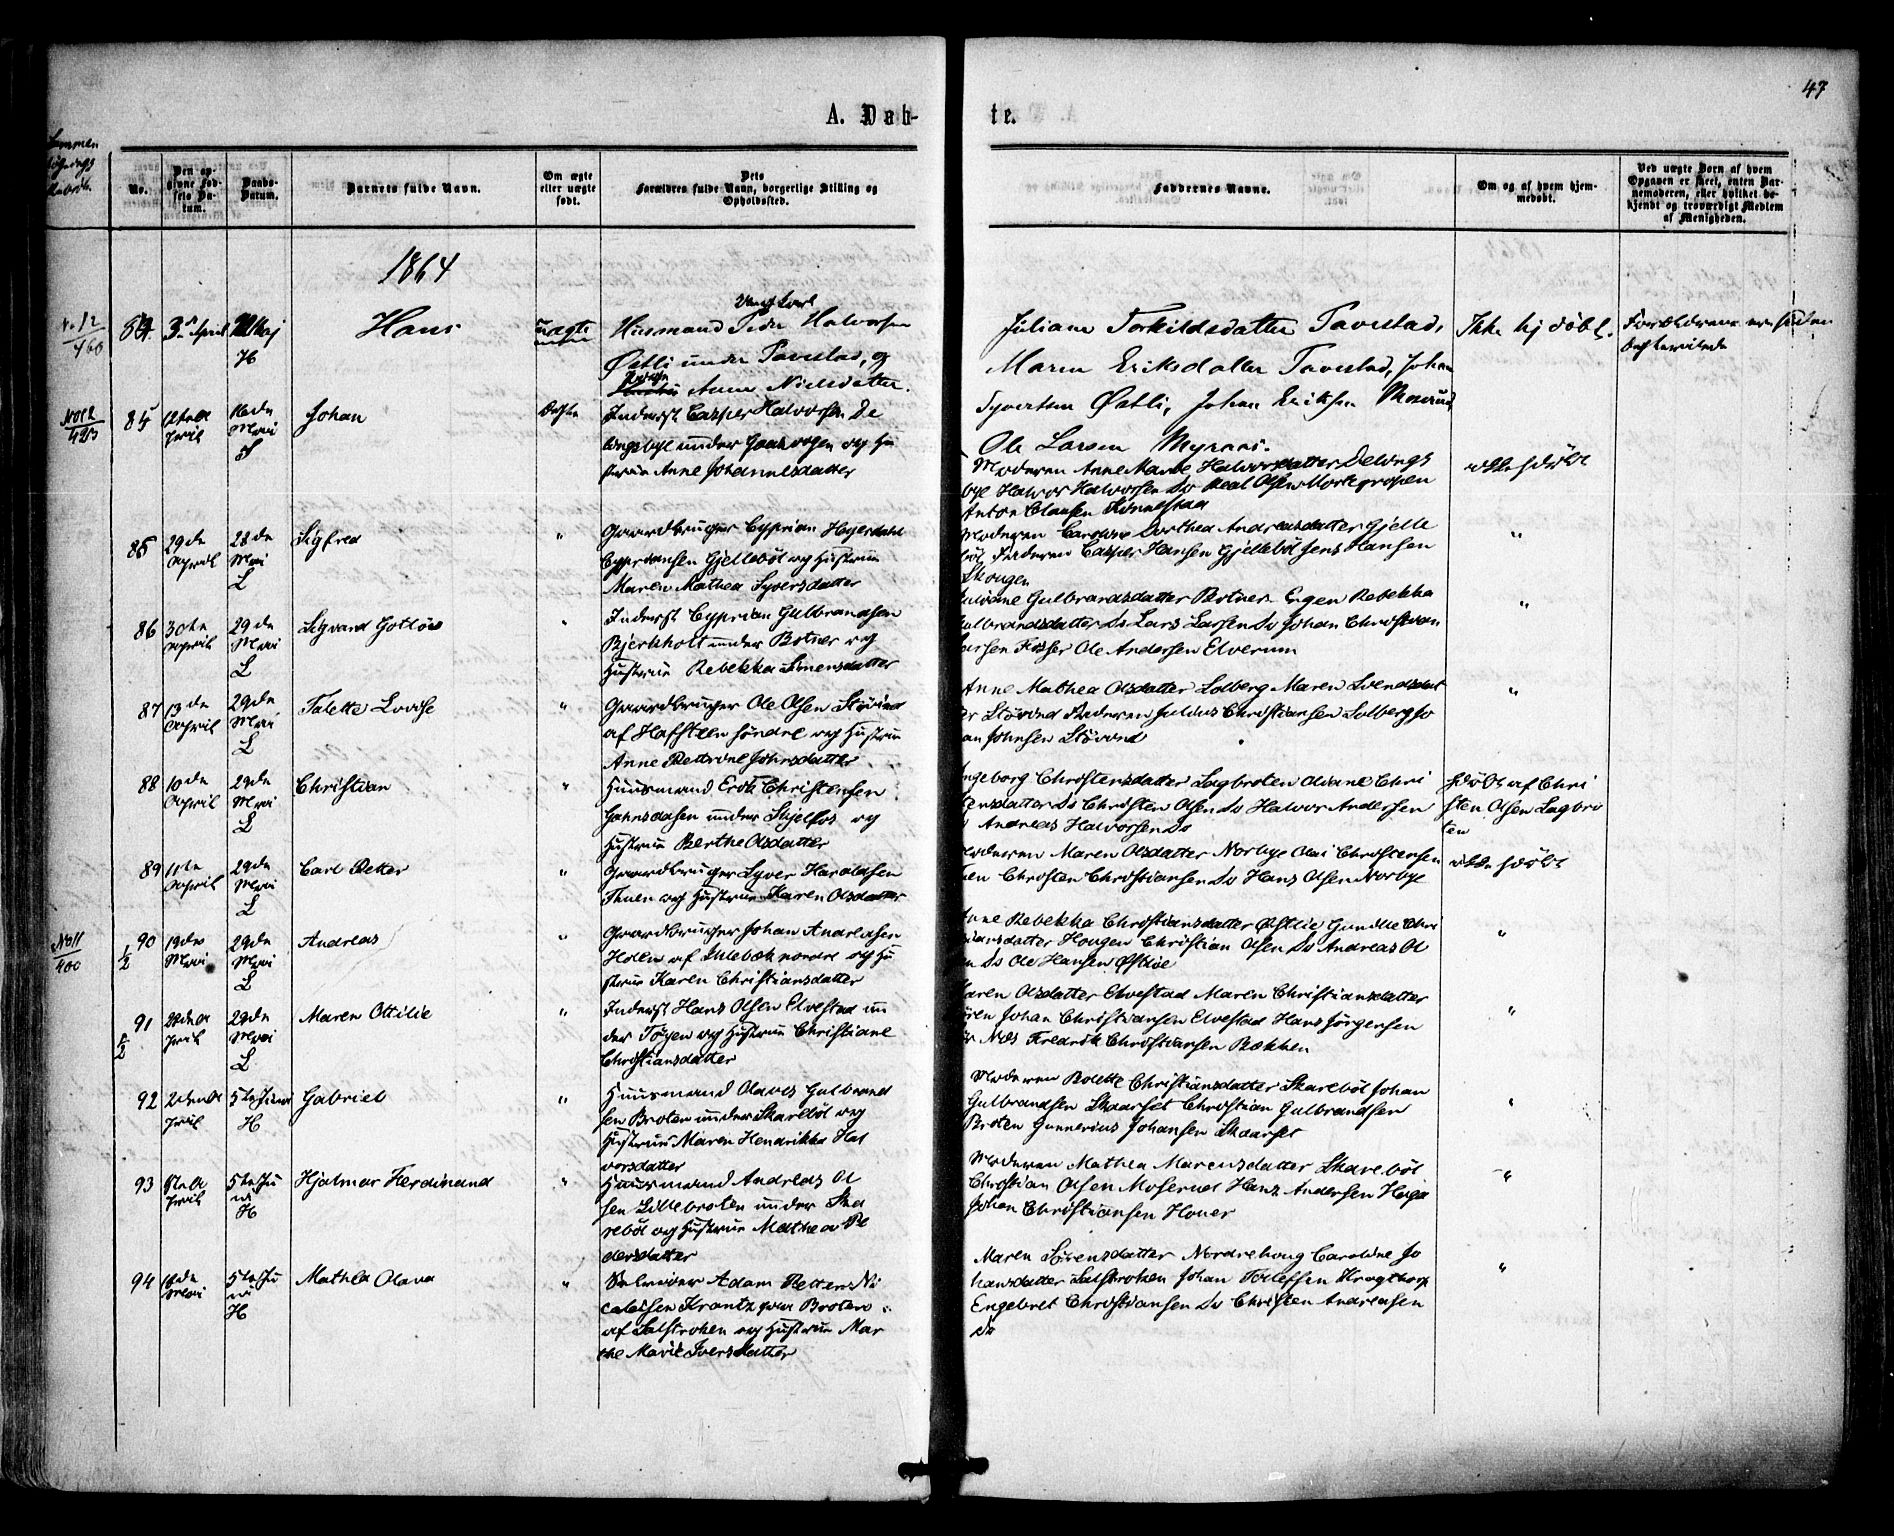 47
A. Døb-
te.
No.
Den op-
givne Fød-
sels Da-
tum.
Daabs-
Datum.
Barnets fulde Navn.
Om ægte
eller uægte
født.
Dets
Forældres fulde Navn, borgerlige Stilling og
Opholdssted.
Faddernes Navne.
Om og af hvem hjem-
medøbt.
Ved uægte Born af hvem
Opgaven er skeet, enten Bar-
nemoderen, eller hvilket be-
kjendt og troværdigt Medlem
af Menigheden.
1864
No 12
460
84
3. April
Maj
H
Hans
uægte
Ungkarl
Husmand Peder Halvorsen
Østli under Tavestad, og
Pige
Anne Nielsdatter.
Juliane Torkildsdatter Tavestad,
Maren Eriksdatter Tavestad, Johan
Syvertsen Østli, Johan Eriksen
Ole Larsen Myraas.
Ikke hj. døbt.
Forældrene ere siden
No 12
423
85
12te A
pril
16de
Mai
S
Johan
Ægte
Inderst Casper Halvorsen De
lingsbye under Haakaagen og Hu
strue Anne Johannesdatter
Moderen Anne Marie Halvorsdatter Delings
bye Halvor Halvorsen Do
Anton Clausen
ikke hdöbt
85
29de
April
28de
Mai
L
Sigfred
"
Gaardbruger Cyprian Hegerdahl
Cypriansen Gjelleböl og Hustrue
Maren Mathea Syversdatter
Moderen Caroline Dorthea Andreasdatter Gjelle
böl Faderen Casper Hansen Gjelleböl Jens Hansen
Skougen
"
86
30te
April
29de
Mai
L
Sigvard Gotlov
"
Inderst Cyprian Gulbrandsen
Bjerkholt under Botner og
Hustrue Rebekka Simensdatter
Juliane Gulbrandsdatter Botner Eugen Rebekka
Gulbrandsdatter Do Lars Larsen Do Johan Christian
Larsen Fosser Ole Andersen Elverum
"
87
13de
April
29de
Mai
L
Talette Lovise
"
Gaardbruger Ole Olsen Stövind
af Hafsteen söndre og Hustrue
Anne Pettrine Johnsdatter
Anne Mathea Olsdatter Solberg Maren Svendsdat
ter Stövind Faderen Julius Christiansen Solberg Jo
han Johnsen Stövind
"
88
10de
April
29de
Mai
L
Christian
"
Huusmand Erik Christensen
under Skjelfos og
Hustrue Berthe Olsdatter
Ingeborg Christensdatter Sagbroten Olvane Chri
stensdatter Do Christen Olsen Do Halvor Andersen
Do Andreas Halvorsen Do
hdöbt af Chri
sten Olsen Sagbro
ten
89
11te
April
29de
Mai
L
Carl Petter
"
Gaardbruger Syver Haraldsen
Thuen og Hustrue Karen Olsdatter
Moderen Maren Olsdatter Norbye Olai Christensen
Thuen Christen Christiansen Do Hans Olsen Norbye
ikke hdöbt
No 11
400
1/2
90
19de
Mai
29de
Mai
L
Andreas
"
Gaardbruger Johan Andreasen
Holen af Sulebæk nordre og Hu
strue Karen Christiansdatter
Anne Rebekka Christiansdatter Østlie Gunille Chri
stiansdatter Hougen Christian Olsen Do Andreas Ol
sen Do Ole Hansen Østlie
"
1/2
91
28de A
pril
29de
Mai
L
Maren Ottilie
"
Inderst Hans Olsen Elvestad un
der Töyen og Hustrue Christiane
Christiansdatter
Karen Olsdatter Elvestad Maren Christiansdatter
Johan Christiansen Elvestad Hans Jörgensen
Næs Fredrik Christiansen Bækken
"
92
2den A
pril
5te Juni
H
Gabriel
"
Huusmand Olaves Gulbrand
sen Broten under Skareböl og
Hustrue Maren Hendrikka Hal
vorsdatter
Moderen Bolette Christiansdatter Skareböl Johan
Gulbrandsen Skaarset Christian Gulbrandsen
Broten Gunnerius Johansen Skaarset
"
93
8de A
pril
5te Ju
ni
H
Hjalmar Ferdinand
"
Huusmand Andreas Ol
sen Lillebroten under Ska
reböl og Hustrue Mathea Pe
dersdatter
Moderen Mathea Marensdatter Skareböl
Christian Olsen Mosernes Hans Andersen Haga
Johan Christiansen Houer
"
94
16de
Mai
5te Ju
ni
H
Mathea Olava
"
Selveier Adam Petter Ni
colaisen Krantz paa Broten
af Salstroken og Hustrue Mar
the Marie Iversdatter
Maren Sörensdatter Nordrehoug Caroline Jo
hansdatter Salstroken Johan Tollefsen Kragtorp
Engebret Christiansen Do Christen Andreasen
Do
"